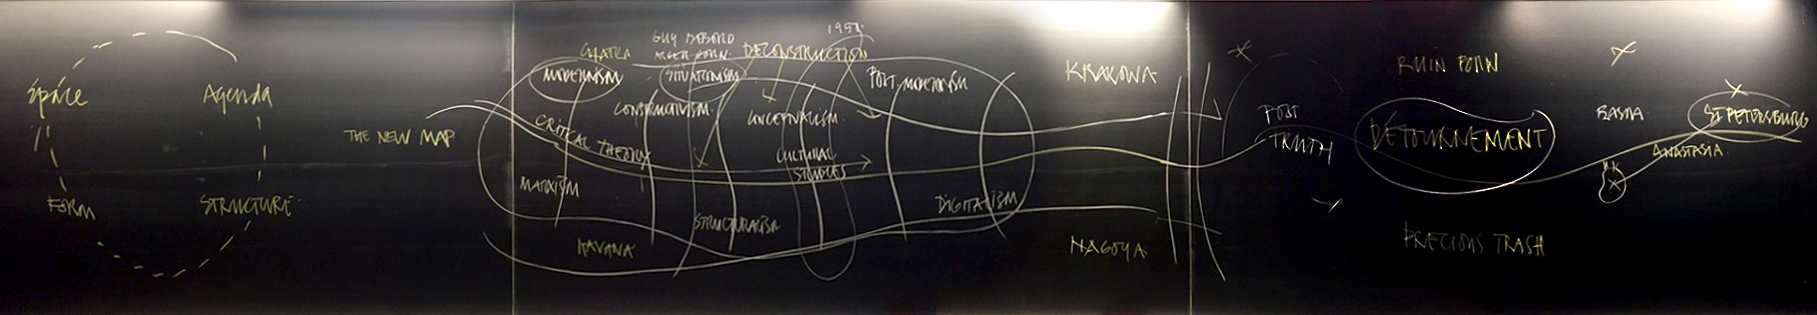 Space
Agenda
FORM
STRUCTURE
THE NEW MAP
GUY DEBORD
ASGER JORN
1957
DECONSTRUCTION
MODERNISM
SITUATIONISM
POST-MODERNISM
CONSTRUCTIVISM
CRITICAL THEORY
CULTURAL
STUDIES
MARXISM
STRUCTURALISM
DIGITALISM
HAVANA
KRAKOWA
NAGOYA
POST
TRUTH
RUIN PORN
DÉTOURNEMENT
PRECIOUS TRASH
BASMA
ST PETERSBURG
ANASTASIA